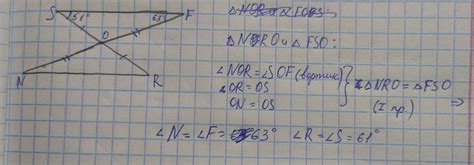 S 61° 63° F
O
N R
△NRO и △FSO:
∠NOR = ∠SOF (вертик)
OR = OS
ON = OS
} △NRO = △FSO
(I пр.)
∠N = ∠F = 63° ∠R = ∠S = 61°